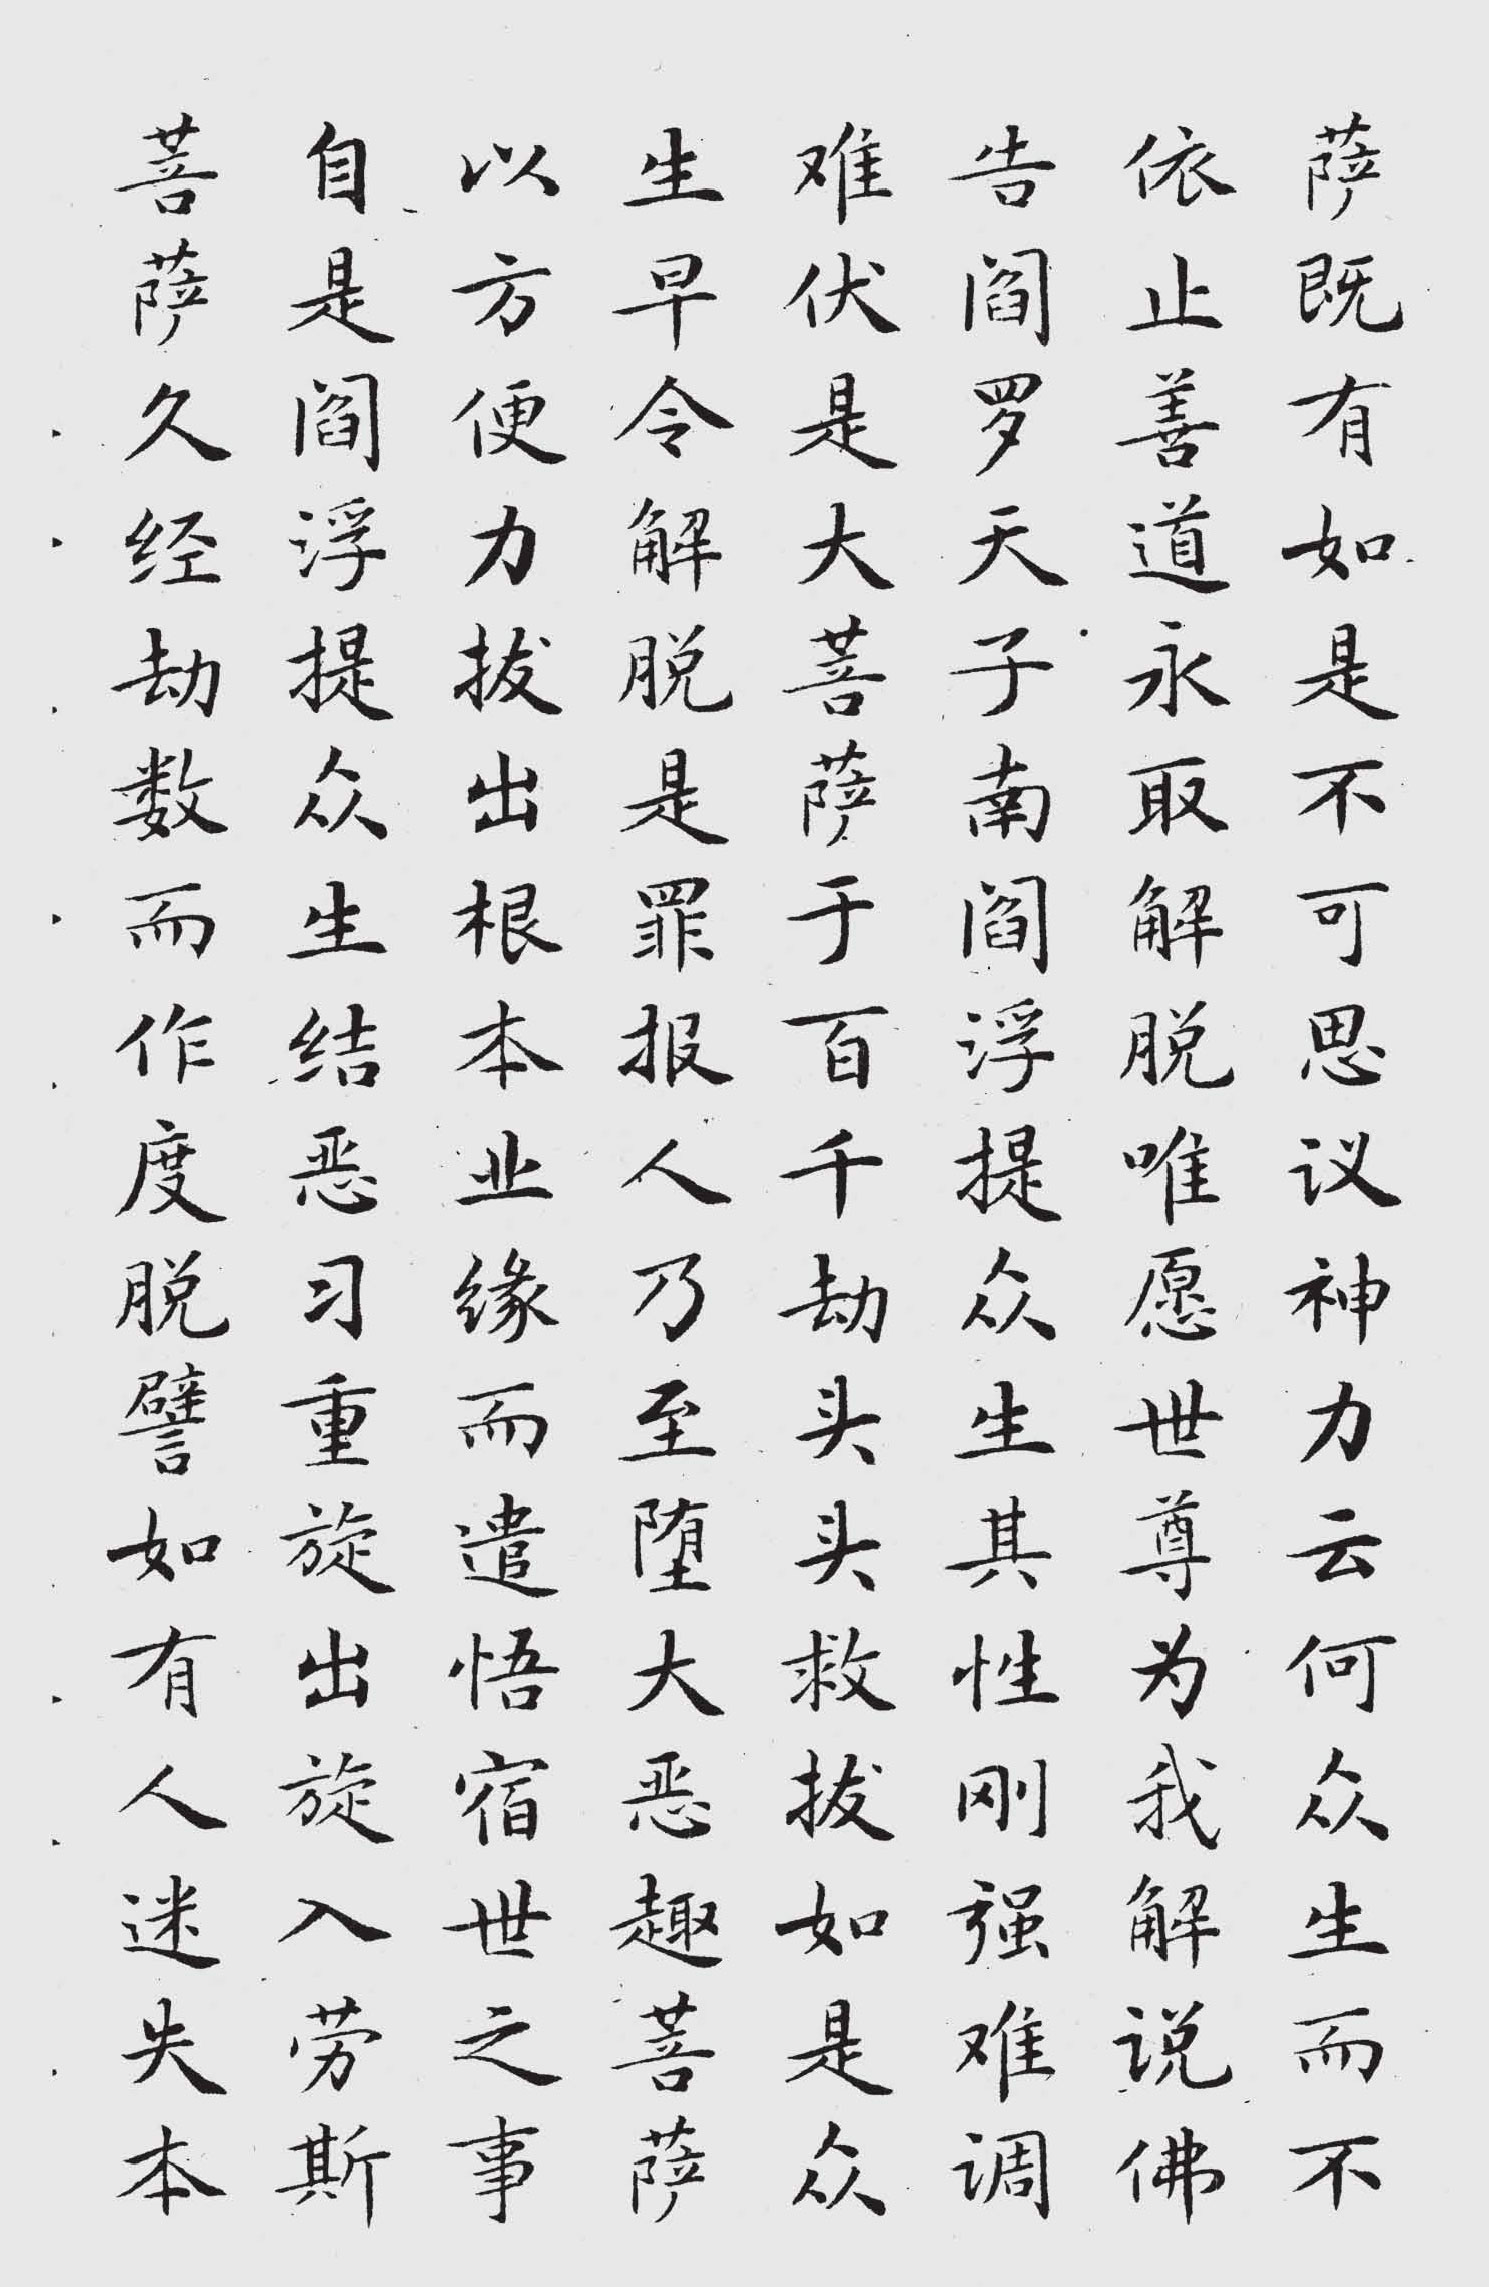 萨既有如是不可思议神力云何众生而不
依止善道永取解脱唯愿世尊为我解说佛
告阎罗天子南阎浮提众生其性刚强难调
难伏是大菩萨于百千劫头头救拔如是众
生早令解脱是罪报人乃至堕大恶趣菩萨
以方便力拔出根本业缘而遣悟宿世之事
自是阎浮提众生结恶习重旋出旋入劳斯
菩萨久经劫数而作度脱譬如有人迷失本